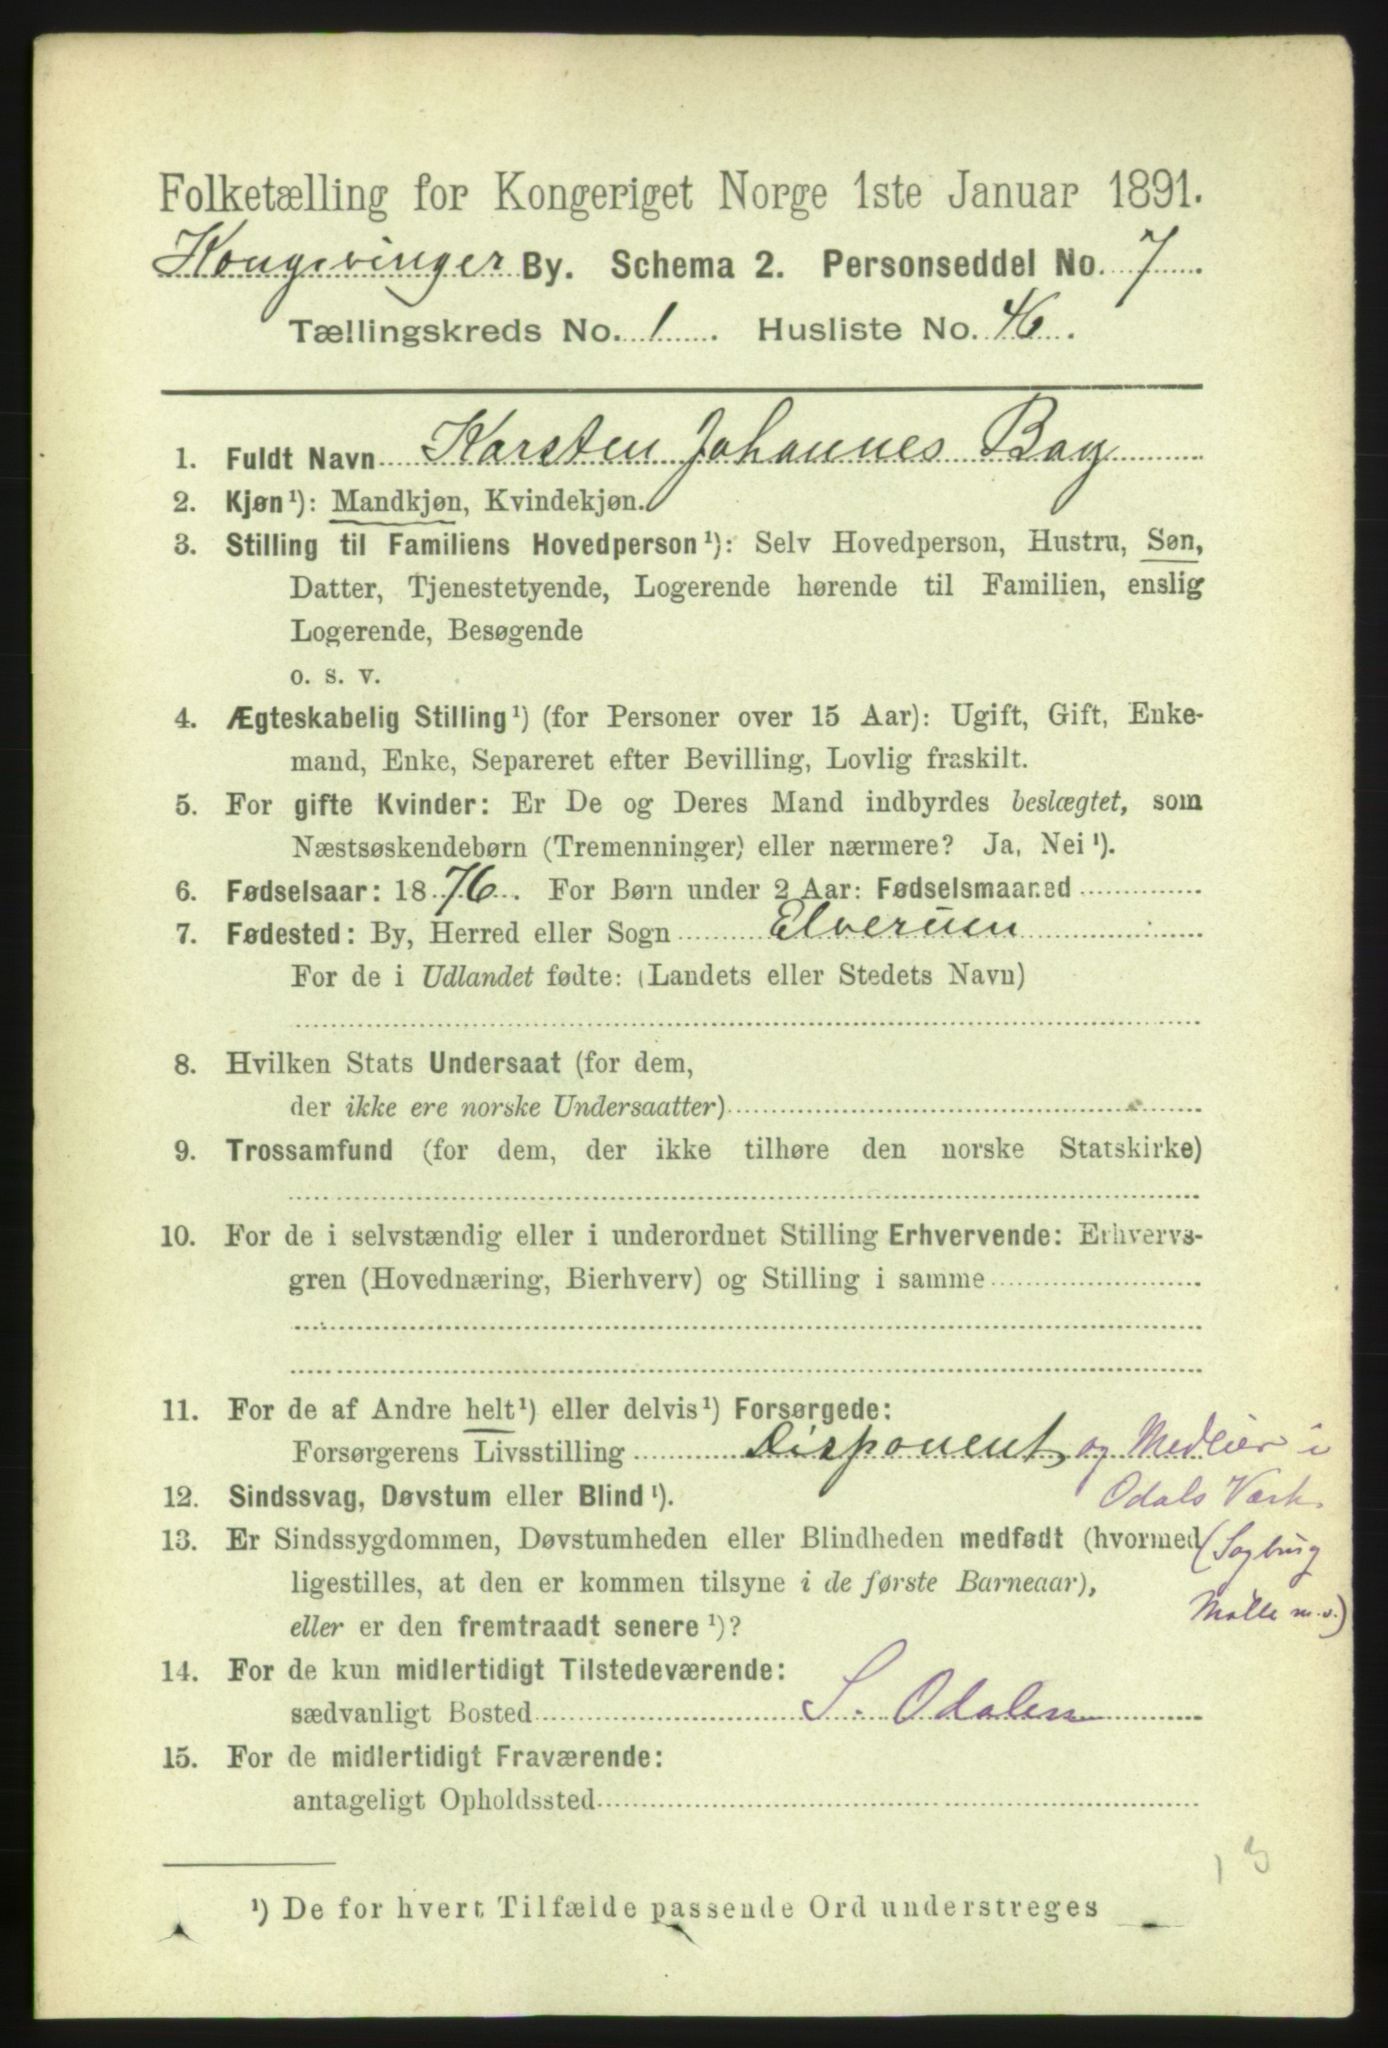 Folketælling for Kongeriget Norge 1ste Januar 1891.
Kongsvinger By. Schema 2. Personseddel No. 7
Tællingskreds No. 1. Husliste No. 46.
1. Fuldt Navn Karsten Johannes Bay
2. Kjøn¹): Mandkjøn, Kvindekjøn.
3. Stilling til Familiens Hovedperson¹): Selv Hovedperson, Hustru, Søn,
Datter, Tjenestetyende, Logerende hørende til Familien, enslig
Logerende, Besøgende
o. s. v.
4. Ægteskabelig Stilling¹) (for Personer over 15 Aar): Ugift, Gift, Enke-
mand, Enke, Separeret efter Bevilling, Lovlig fraskilt.
5. For gifte Kvinder: Er De og Deres Mand indbyrdes beslægtet, som
Næstsøskendebørn (Tremenninger) eller nærmere? Ja, Nei¹).
6. Fødselsaar: 1876. For Børn under 2 Aar: Fødselsmaaned
7. Fødested: By, Herred eller Sogn Elverum
For de i Udlandet fødte: (Landets eller Stedets Navn)
8. Hvilken Stats Undersaat (for dem,
der ikke ere norske Undersaatter)
9. Trossamfund (for dem, der ikke tilhøre den norske Statskirke)
10. For de i selvstændig eller i underordnet Stilling Erhvervende: Erhvervs-
gren (Hovednæring, Bierhverv) og Stilling i samme
11. For de af Andre helt¹) eller delvis¹) Forsørgede:
Forsørgerens Livsstilling Disponent og Medeier i
12. Sindssvag, Døvstum eller Blind¹). Odals Værk.
13. Er Sindssygdommen, Døvstumheden eller Blindheden medfødt (hvormed (Sagbrug
ligestilles, at den er kommen tilsyne i de første Barneaar), Mølle m.v.)
eller er den fremtraadt senere¹)?
14. For de kun midlertidigt Tilstedeværende:
sædvanligt Bosted S. Odalen
15. For de midlertidigt Fraværende:
antageligt Opholdssted
13
¹) De for hvert Tilfælde passende Ord understreges